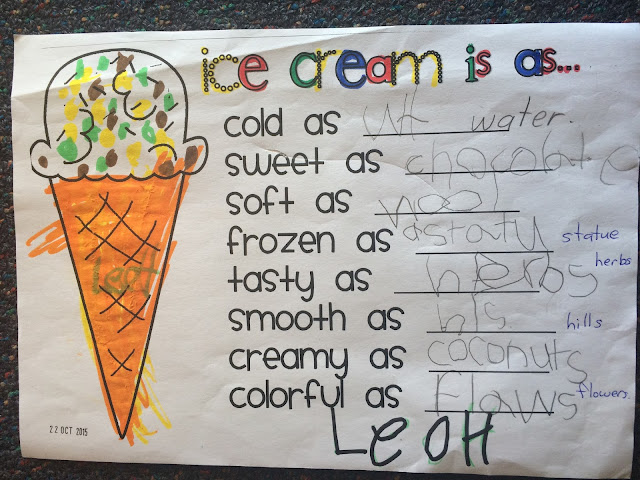 ice cream is as...
cold as water.
sweet as chocolate
soft as wool
frozen as astatu statue
tasty as herbs herbs
smooth as hls hills
creamy as coconuts
colorful as Flaws flowers
LeoH
22 OCT 2015